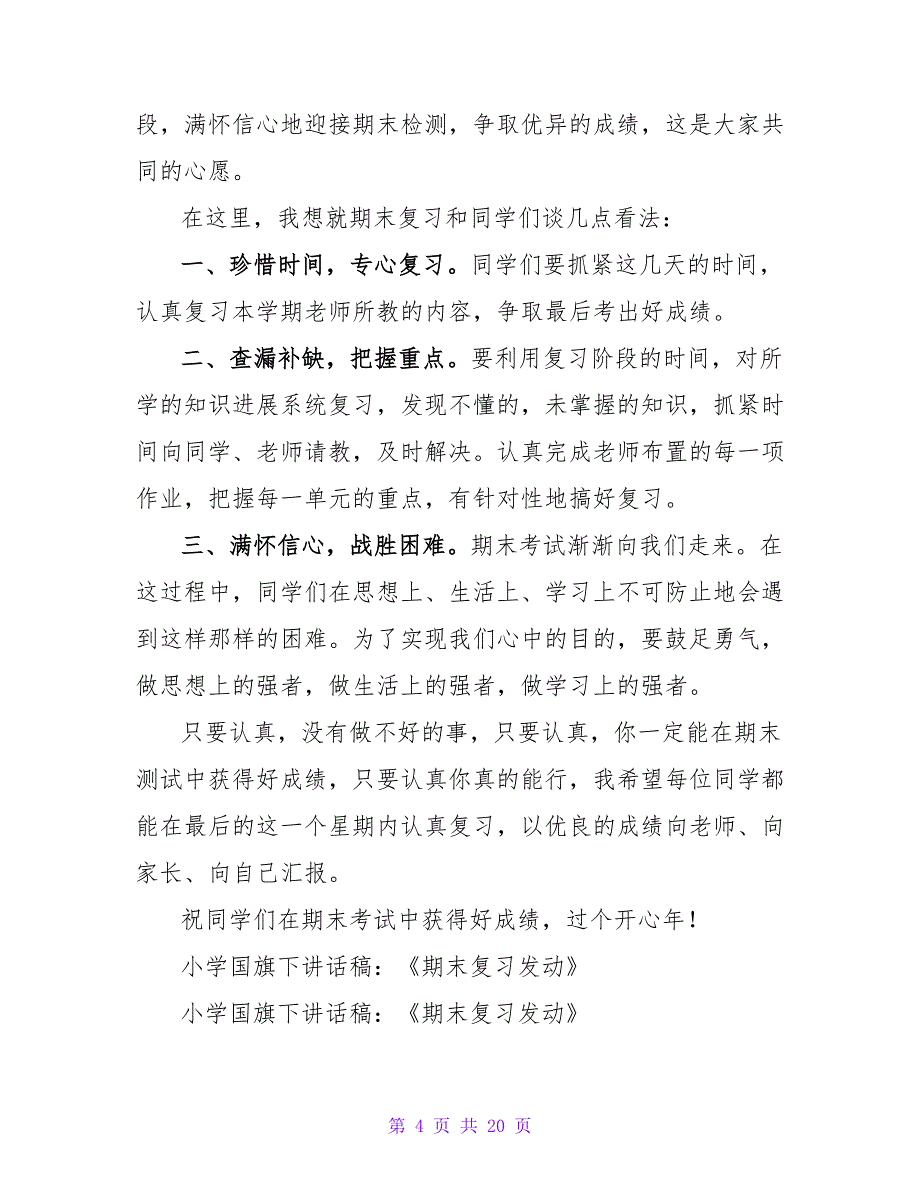 段，满怀信心地迎接期末检测，争取优异的成绩，这是大家共
同的心愿。
在这里，我想就期末复习和同学们谈几点看法：
一、珍惜时间，专心复习。同学们要抓紧这几天的时间，
认真复习本学期老师所教的内容，争取最后考出好成绩。
二、查漏补缺，把握重点。要利用复习阶段的时间，对所
学的知识进展系统复习，发现不懂的，未掌握的知识，抓紧时
间向同学、老师请教，及时解决。认真完成老师布置的每一项
作业，把握每一单元的重点，有针对性地搞好复习。
三、满怀信心，战胜困难。期末考试渐渐向我们走来。在
这过程中，同学们在思想上、生活上、学习上不可防止地会遇
到这样那样的困难。为了实现我们心中的目的，要鼓足勇气，
做思想上的强者，做生活上的强者，做学习上的强者。
只要认真，没有做不好的事，只要认真，你一定能在期末
测试中获得好成绩，只要认真你真的能行，我希望每位同学都
能在最后的这一个星期内认真复习，以优良的成绩向老师、向
家长、向自己汇报。
祝同学们在期末考试中获得好成绩，过个开心年！
小学国旗下讲话稿：《期末复习发动》
小学国旗下讲话稿：《期末复习发动》
第 4 页 共 20 页